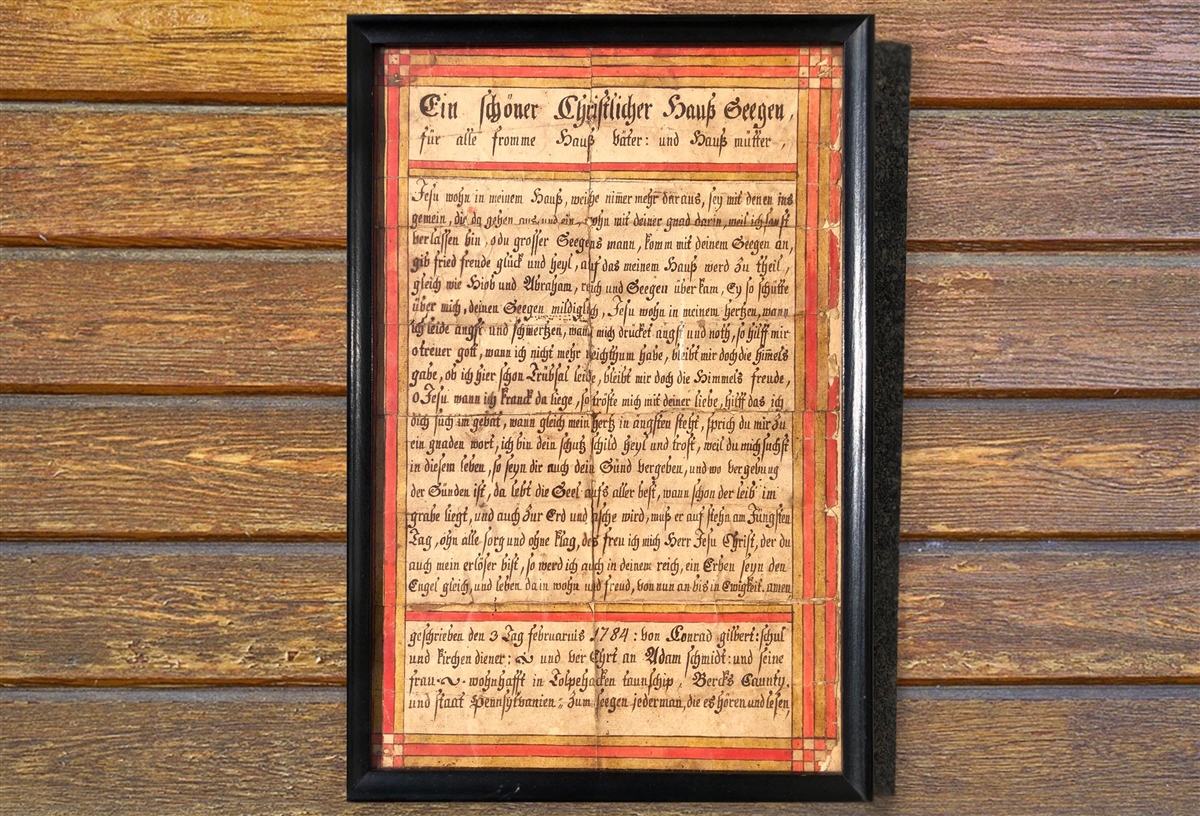 Ein schöner Christlicher Hauß Seegen,
für alle fromme Hauß väter: und Hauß mütter,
Jesu wohn in meinem Hauß, weiche nim̄er mehr daraus, sey mit denen ins
gemein, die da gehen aus und ein, wohn mit deiner gnad darin, weil ich sonst
verlassen bin, o du grosser Seegens mann, komm mit deinem Seegen an,
gib fried freude glück und heyl, auf das meinem Hauß werd zu theil,
gleich wie Hiob und Abraham, reich und Seegen über kam, Ey so schütte
über mich, deinen Seegen mildiglich, Jesu wohn in meinem hertzen, wann
ich leide angst und schmertzen, wann mich drucket angst und noth, so hilff mir
o treuer gott, wann ich nicht mehr reichthum habe, bleibt mir doch die him̄els
gabe, ob ich hier schon Trübsal leide, bleibt mir doch die Himmels freude,
O Jesu wann ich kranck da liege, so tröste mich mit deiner liebe, hilff das ich
dich such im gebät, wann gleich mein hertz in ängsten steht, sprich du mir zu
ein gnaden wort, ich bin dein schutz schild heyl und trost, weil du mich suchst
in diesem leben, so seyn dir auch dein Sünd vergeben, und wo vergebung
der Sünden ist, da lebt die Seel aufs aller best, wann schon der leib im
grabe liegt, und auch zur Erd und asche wird, muß er auf stehn am Jüngsten
Tag, ohn alle sorg und ohne klag, des freu ich mich Herr Jesu Christ, der du
auch mein erlöser bist, so werd ich auch in deinem reich, ein Erben seyn den
Engel gleich, und leben da in wohn und freud, von nun an bis in Ewigkeit. amen
geschrieben den 3 Tag februarius 1784: von Conrad gilbert: schul
und kirchen diener: und ver Ehrt an Adam schmidt: und seine
frau wohnhafft in Tolpehacken taunschip, Bercks Caunty,
und staat Pennsylvanien: zum seegen jederman, die es hören und lesen,